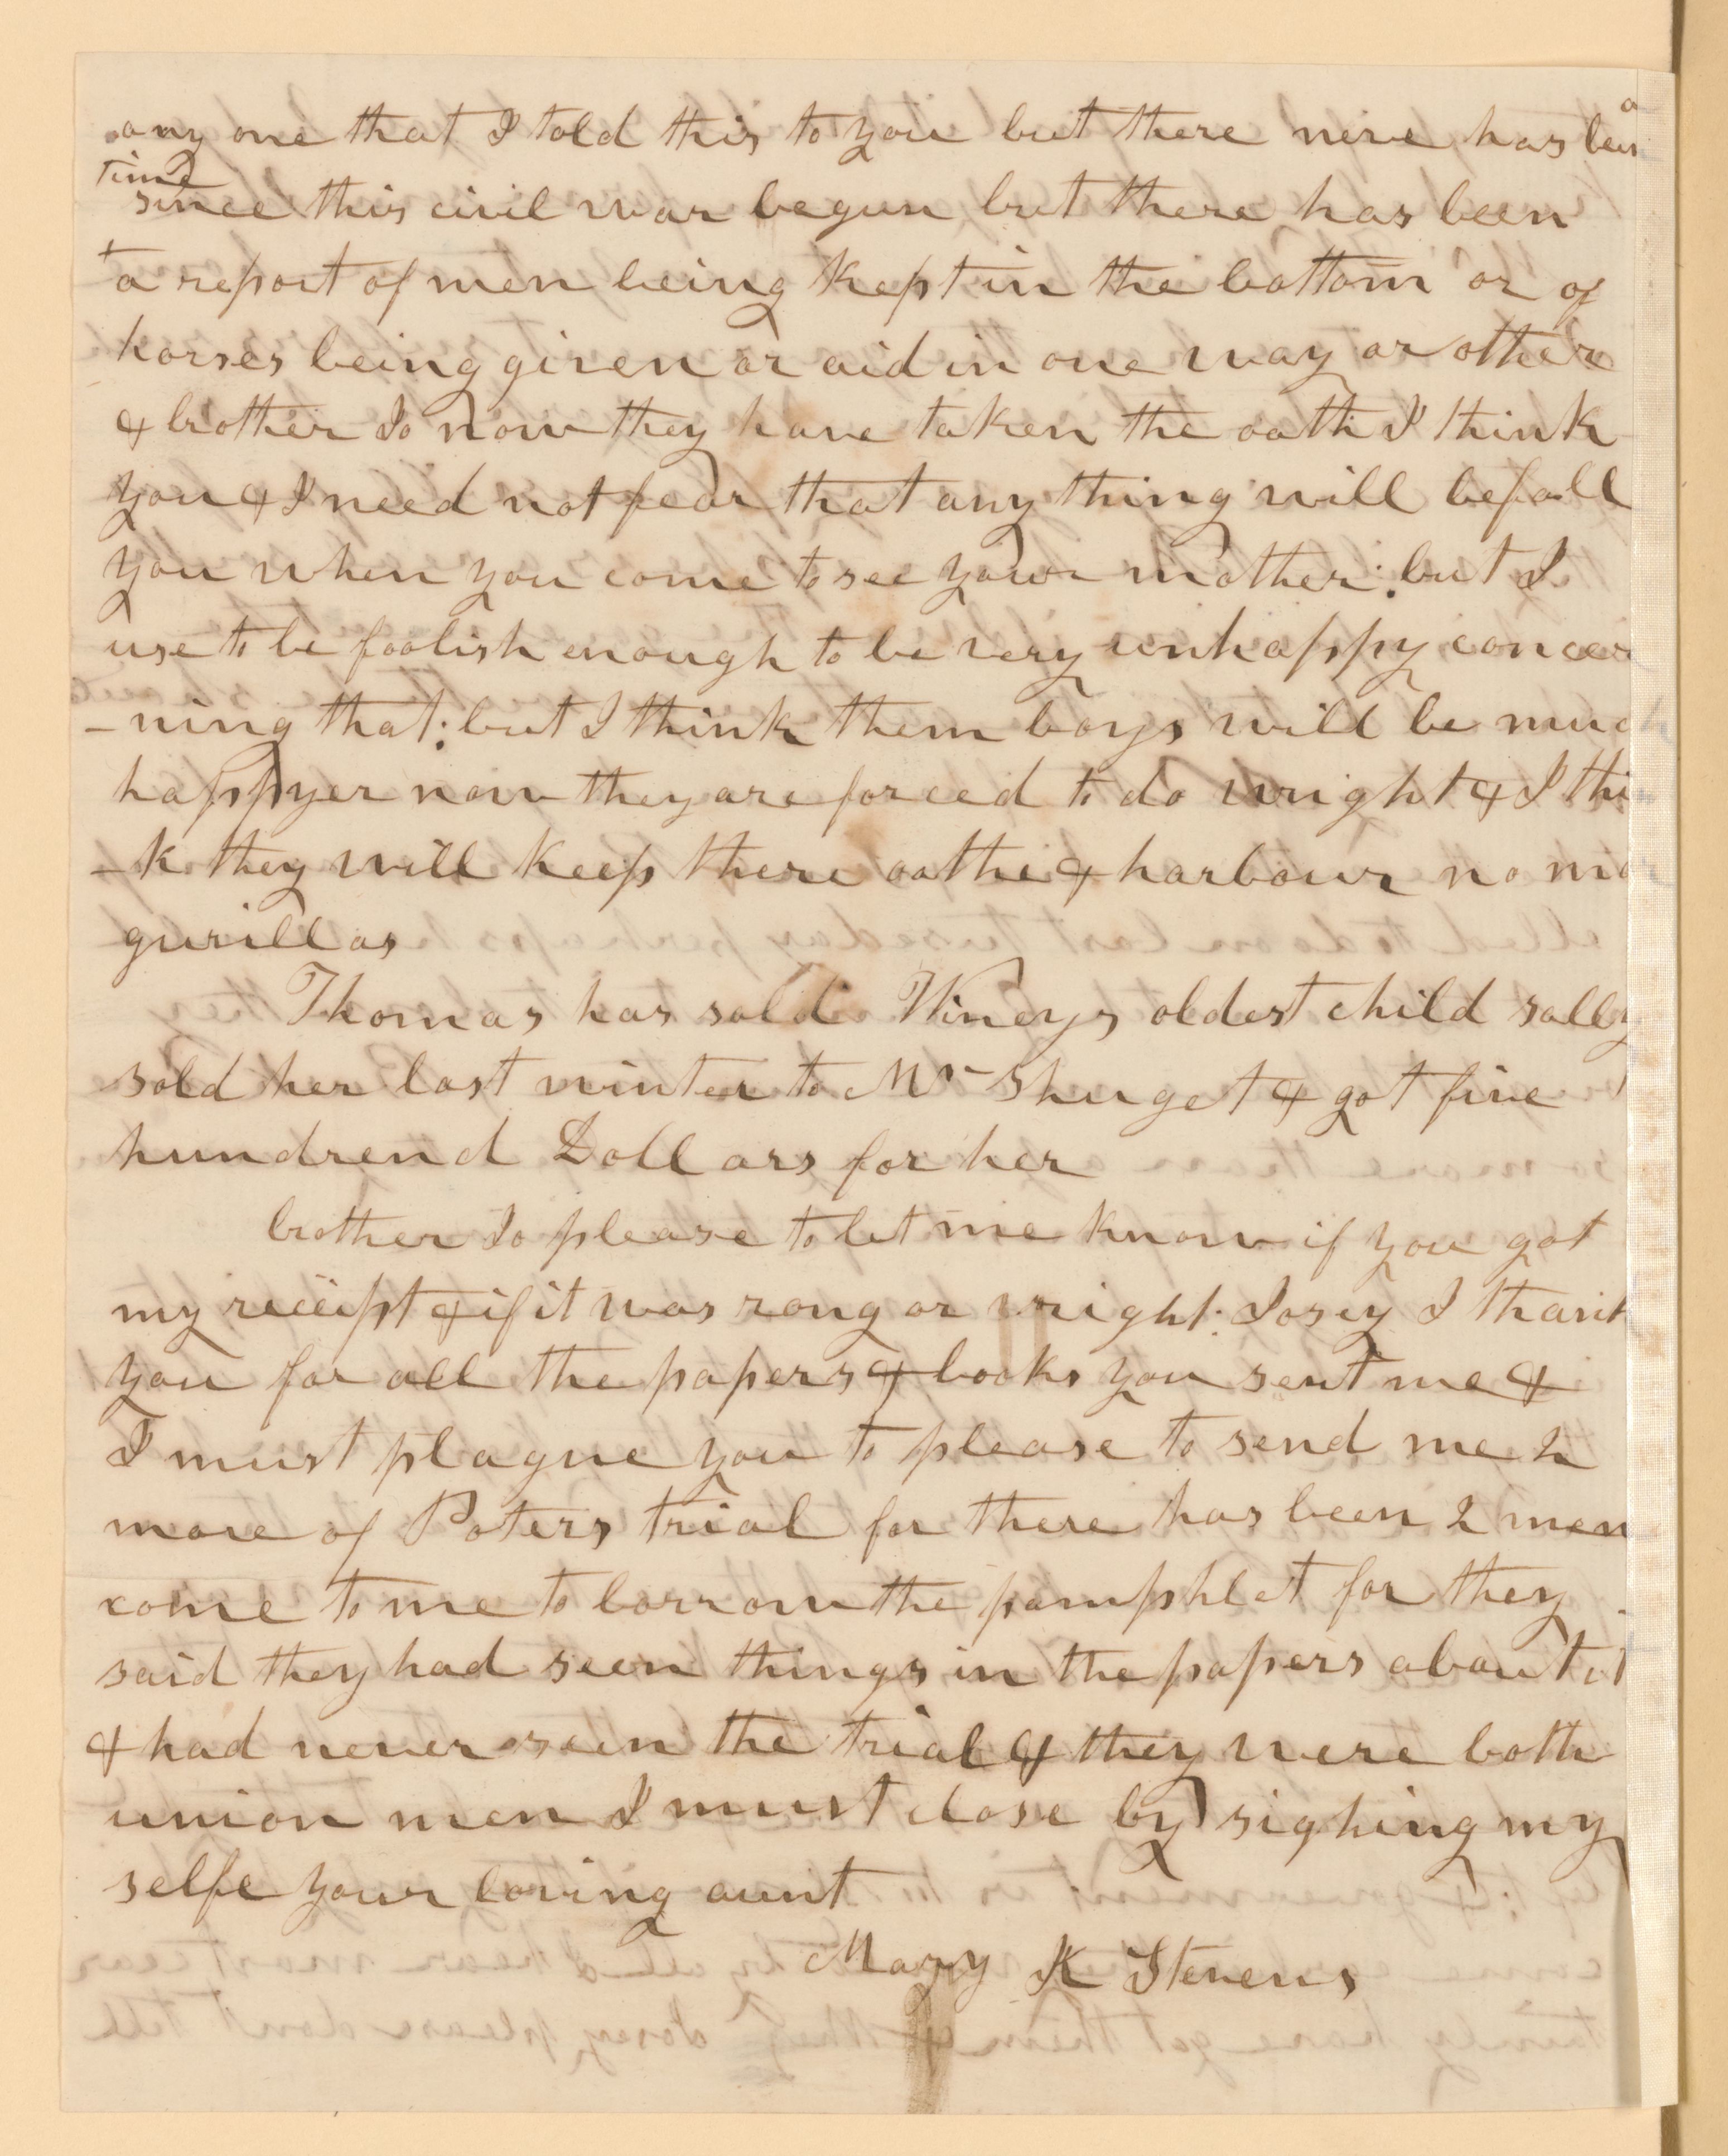 any one that I told this to you but there neve has been a
time
since this civil war begun but there has been
t a report of men being kept in the bottom or of
horses being given or aid in one way or other
& brother Jo now they have taken the oath I think
you & I need not fear that any thing will befall
you when you come to see your mother: but I
use to be foolish enough to be very unhappy concer
-ning that: but I think them boys will be much
happyer now they are forced to do wright & I thin
-k they will keep there oathe & harbour no mor
gurillas
Thomas has sold Wineys oldest child sally
sold her last winter to Mr Shuget & got five
hundrend Dollars for her
brother Jo please to let me know if you got
my reciept & if it was rong or wright. Josey I thank
you for all the papers & books you sent me &
I must plague you to please to send me 2
more of Poters trial for there has been 2 men
come to me to borrow the pamphlet for they
said they had seen things in the papers about it
& had never seen the trial & they were both
union men I must close by sighing my
selfe your loving aunt
Mary K Stevens